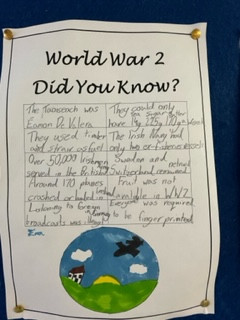 World War 2
Did You Know?
The Taoiseach was
Eamon De Valera
They used timber
and straw as fuel
Over 50,000 Irishmen
signed in the British
Around 170 planes
crashed or landed in
Listening to foreign
broadcasts was illegal
They could only
have
The Irish Navy had
only two
Sweden and
Switzerland remained neutral
fruit was not
available in W.W.2
Everyone was required
to be finger printed